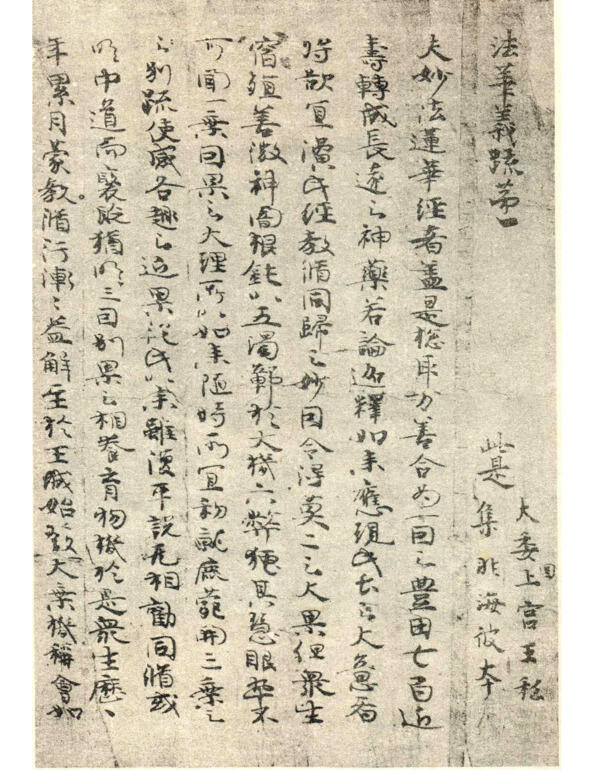 法華義疏第一
此是
大委国上宮王私
集非海彼本
夫妙法蓮華經者蓋是惣取万善合為一因之豊田七百近
壽轉成長遠之神藥若論迦釋如来應現此土之大意者
将欲宜演此經教脩同歸之妙因令得莫二之大果但衆生
宿殖善微神闇根鈍以五濁鄣於大機六弊掩其慧眼卒不
可聞一乗因果之大理所以如来随時所宜初就鹿菀開三乗之
之別疏使感各趣之近果従此以来雖復平説无相勧同脩或
明中道而褒貶猶明三因別果之相養育物機於是衆生歴〻
年累月蒙教脩行漸〻益解至於王城始發大乗機稱會如